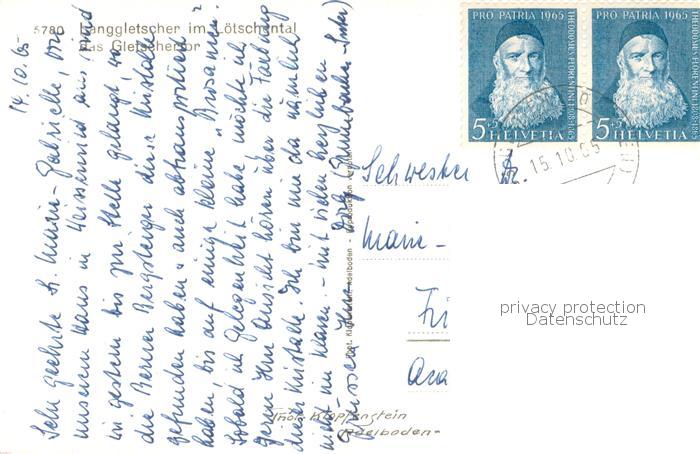 5780 Langgletscher im Lötschental
das Gletschertor
14.10.65
Sehr geehrte Sr. Marie-Gabrielle, von
unserem Haus in Weissenried aus sind
wir gestern bis zur Stelle gelangt, wo
die Berner Bergsteiger diese Kristalle
gefunden haben u. auch abtransportiert
haben, bis auf einige kleine "Brosamen".
Sobald ich Gelegenheit habe möchte ich
gerne Ihre Ansicht hören über die Färbung
dieser Kristalle. Ich bin mir da nämlich
nicht im klaren. - mit vielen herzlichen
Grüssen Ihre
Thor. Klopfenstein
Adelboden
PRO PATRIA 1965
THEODOSIUS FLORENTINI 1808-1865
5+5 HELVETIA
PRO PATRIA 1965
THEODOSIUS FLORENTINI 1808-1865
5+5 HELVETIA
15.10.65
Schwester Dr.
Marie-
Fri
privacy protection
Datenschutz